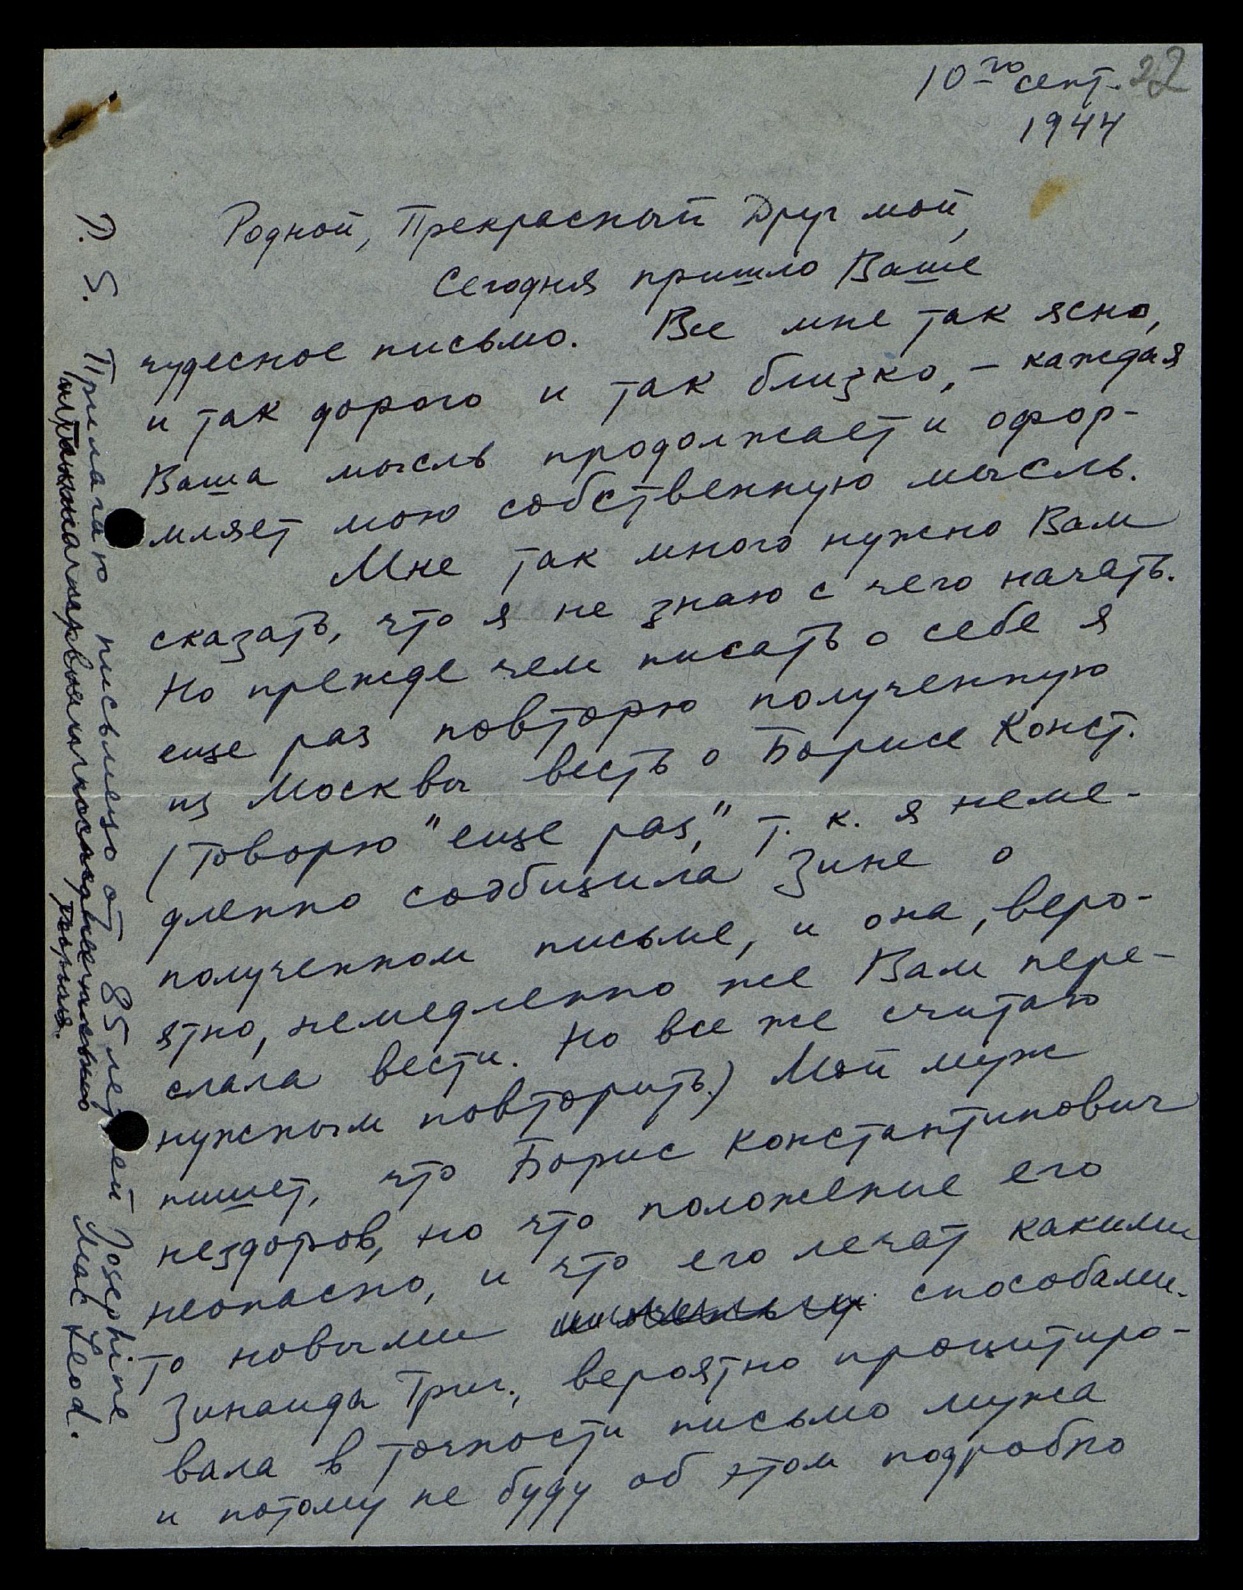 10го сент. 22
1944
Родной, Прекрасный Друг мой,
Сегодня пришло Ваше
чудесное письмо. Все мне так ясно,
и так дорого и так близко, – каждая
Ваша мысль продолжает и офор-
мляет мою собственную мысль.
Мне так много нужно Вам
сказать, что я не знаю с чего начать.
Но прежде чем писать о себе я
еще раз повторю полученную
из Москвы весть о Борисе Конст.
(Говорю "еще раз," т. к. я неме-
дленно сообщила Зине о
полученном письме, и она, веро-
ятно, немедленно же Вам пере-
слала вести. Но все же считаю
нужным повторить.) Мой муж
пишет, что Борис Константинович
нездоров, но что положение его
неопасно, и что его лечат какими
то новыми способами.
Зинаида Григ., вероятно процитиро-
вала в точности письмо мужа
и потому не буду об этом подробно
P. S. Прилагаю письмецо от 85 летней Josephine
Mac Leod.